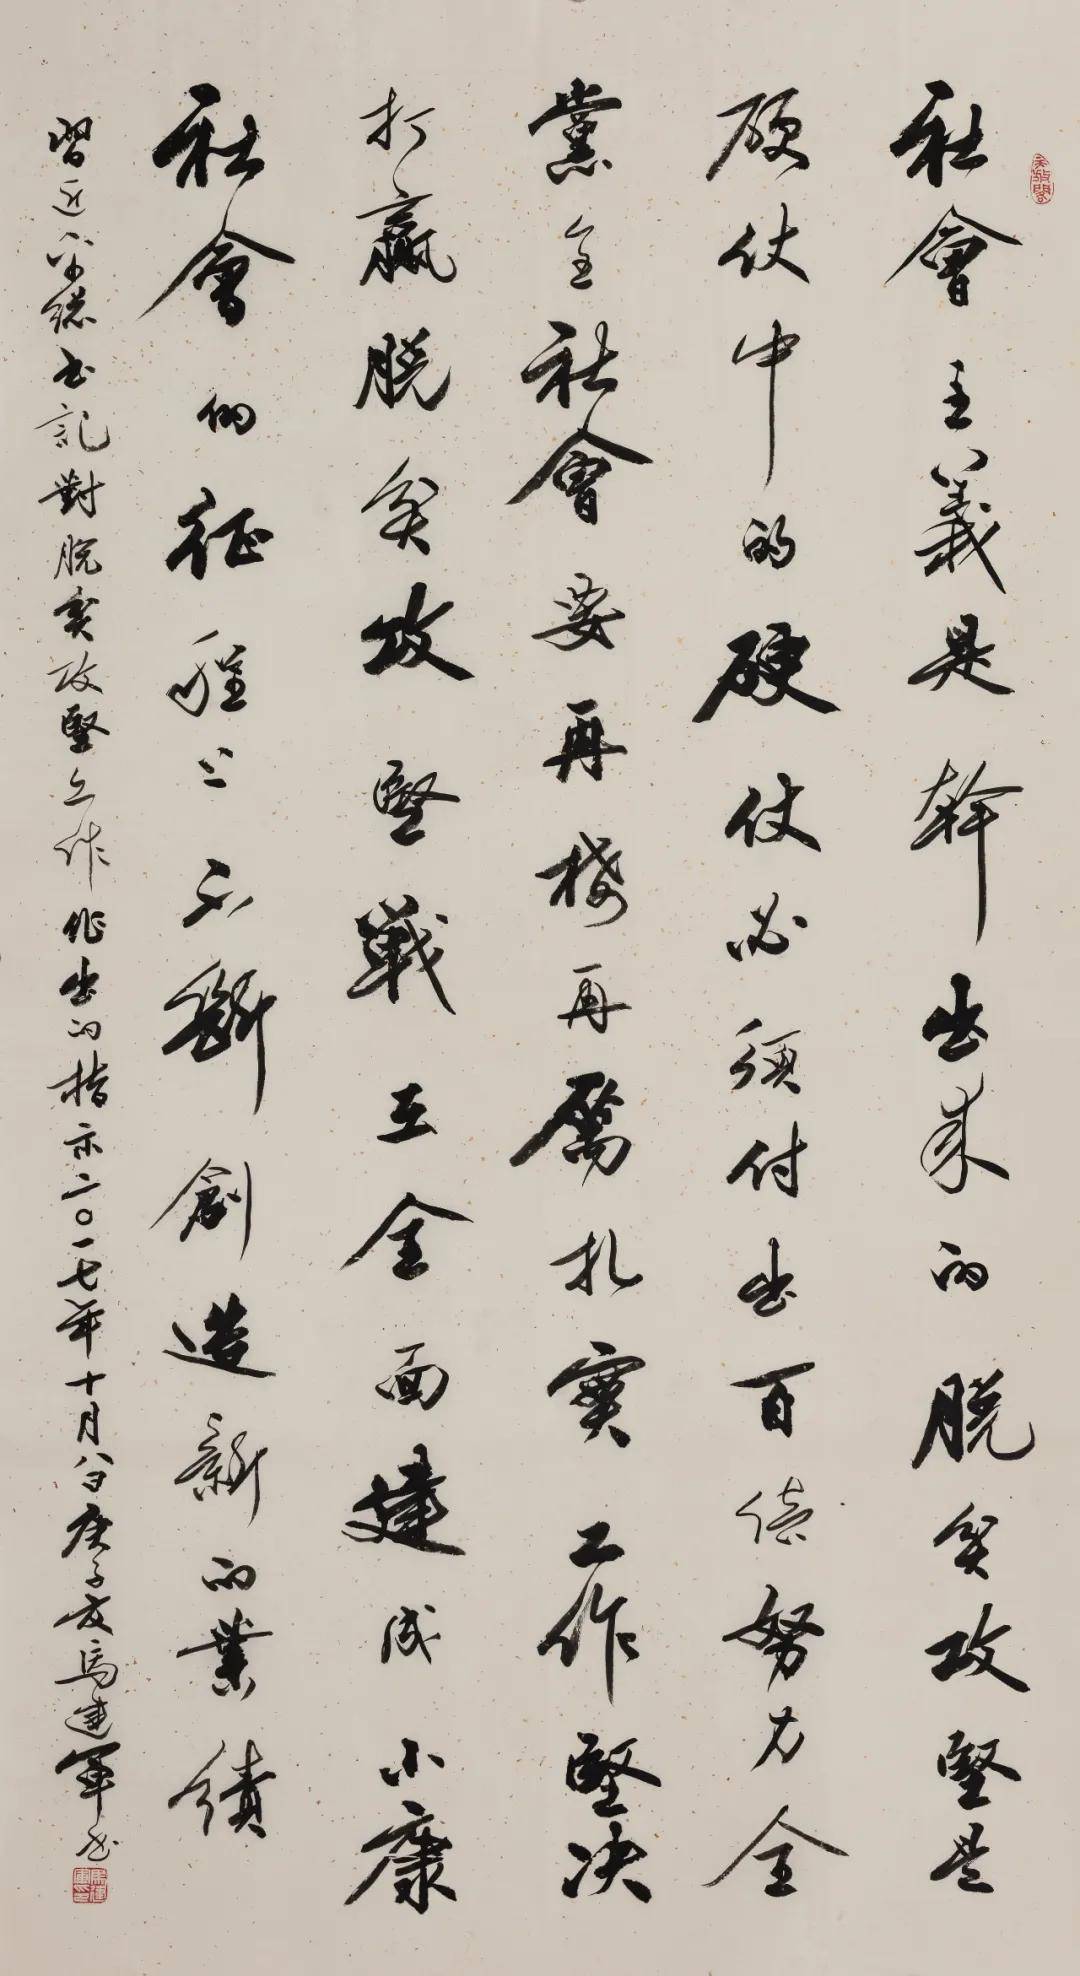 社會主義是幹出來的脫貧攻堅是
硬仗中的硬仗必須付出百倍努力全
黨全社會要再接再厲扎實工作堅决
打贏脫貧攻堅戰在全面建成小康
社會的征程上不斷創造新的業績
習近平總書記對脫貧攻堅工作作出的指示二〇一七年十月八日庚子夏馬建軍書